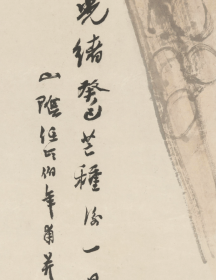 光緒癸巳芒種後一日
山陰任頤伯年甫并